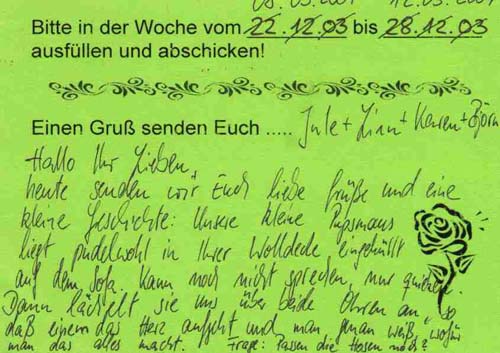 Bitte in der Woche vom 22.12.03 bis 28.12.03
ausfüllen und abschicken!
Einen Gruß senden Euch ..... Jule + Linn + Karen + Björn
Hallo Ihr Lieben,
heute senden wir Euch liebe Grüße und eine
kleine Geschichte: Unsere kleine Pupsmaus
liegt pudelwohl in Ihrer Wolldecke eingehüllt
auf dem Sofa. Kann noch nicht sprechen, nur
Dann lächelt sie uns über beide Ohren an, so
daß einem das Herz aufgeht und man genau weiß, wofür
man das alles macht. Frage: Passen die Hosen noch?